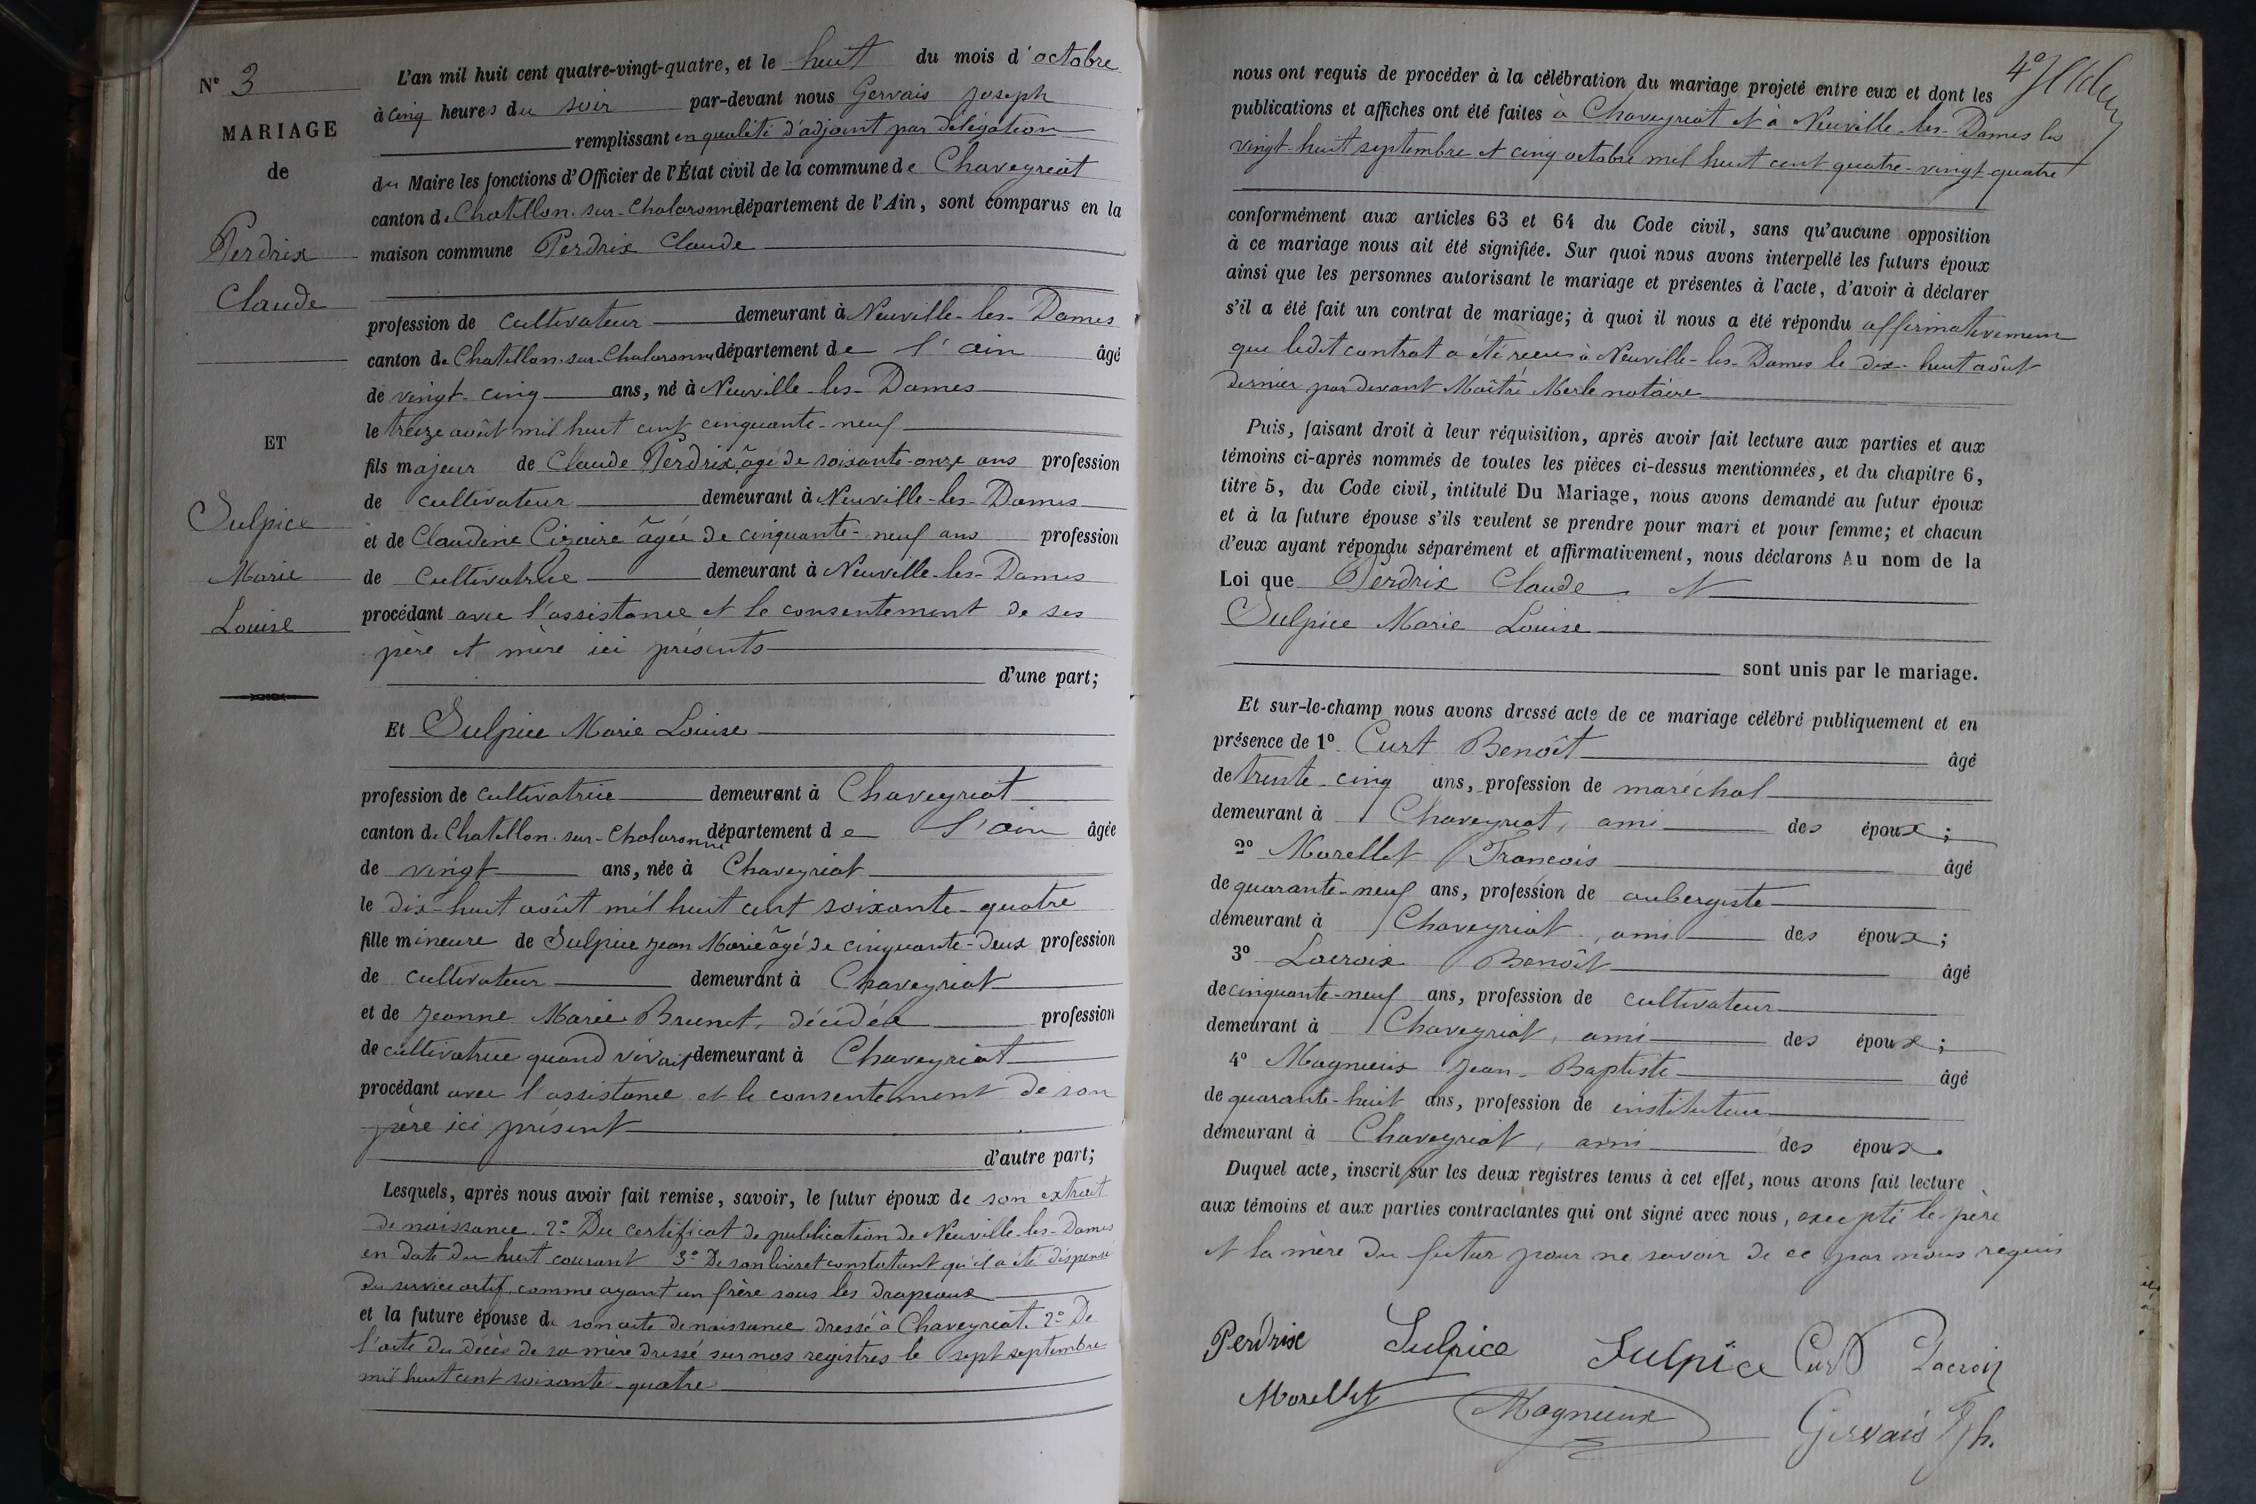 N° 3
MARIAGE
de
Perdrix
Claude
ET
Sulpice
Marie
Louise
L'an mil huit cent quatre-vingt-quatre, et le huit du mois d'octobre
à cinq heures du soir par-devant nous Gervais Joseph
remplissant en qualité d'adjoint par délégation
du Maire les fonctions d'Officier de l'État civil de la commune de Chaveyriat
canton de Chatillon-sur-Chalaronne département de l'Ain, sont comparus en la
maison commune Perdrix Claude
profession de cultivateur demeurant à Neuville-les-Dames
canton de Chatillon-sur-Chalaronne département de l'ain âgé
de vingt-cinq ans, né à Neuville-les-Dames
le treize août mil huit cent cinquante-neuf
fils majeur de Claude Perdrix, âgé de soixante-onze ans profession
de cultivateur demeurant à Neuville-les-Dames
et de Claudine Ciraire âgée de cinquante-neuf ans profession
de cultivatrice demeurant à Neuville-les-Dames
procédant avec l'assistance et le consentement de ses
père et mère ici présents
d'une part;
Et Sulpice Marie Louise
profession de cultivatrice demeurant à Chaveyriat
canton de Chatillon-sur-Chalaronne département de l'ain âgée
de vingt ans, née à Chaveyriat
le dix-huit août mil huit cent soixante-quatre
fille mineure de Sulpice Jean Marie âgé de cinquante-deux profession
de cultivateur demeurant à Chaveyriat
et de Jeanne Marie Brunet, décédée profession
de cultivatrice quand vivait demeurant à Chaveyriat
procédant avec l'assistance et le consentement de son
père ici présent
d'autre part;
Lesquels, après nous avoir fait remise, savoir, le futur époux de son extrait
de naissance. 2° Du certificat de publication de Neuville-les-Dames
en date du huit courant 3° De son livret constatant qu'il a été dispensé
du service actif, comme ayant un frère sous les drapeaux
et la future épouse de son acte de naissance dressé à Chaveyriat. 2° De
l'acte du décès de sa mère dressé sur nos registres le sept septembre
mil huit cent soixante-quatre
nous ont requis de procéder à la célébration du mariage projeté entre eux et dont les
publications et affiches ont été faites à Chaveyriat et à Neuville-les-Dames les
vingt-huit septembre et cinq octobre mil huit cent quatre-vingt-quatre
conformément aux articles 63 et 64 du Code civil, sans qu'aucune opposition
à ce mariage nous ait été signifiée. Sur quoi nous avons interpellé les futurs époux
ainsi que les personnes autorisant le mariage et présentes à l'acte, d'avoir à déclarer
s'il a été fait un contrat de mariage; à quoi il nous a été répondu affirmativement
que ledit contrat a été reçu à Neuville-les-Dames le dix-huit août
dernier par devant Maître Merle notaire
Puis, faisant droit à leur réquisition, après avoir fait lecture aux parties et aux
témoins ci-après nommés de toutes les pièces ci-dessus mentionnées, et du chapitre 6,
titre 5, du Code civil, intitulé Du Mariage, nous avons demandé au futur époux
et à la future épouse s'ils veulent se prendre pour mari et pour femme; et chacun
d'eux ayant répondu séparément et affirmativement, nous déclarons Au nom de la
Loi que Perdrix Claude et
Sulpice Marie Louise
sont unis par le mariage.
Et sur-le-champ nous avons dressé acte de ce mariage célébré publiquement et en
présence de 1° Curt Benoît âgé
de trente-cinq ans, profession de maréchal
demeurant à Chaveyriat, ami des époux;
2° Morellet François âgé
de quarante-neuf ans, profession de aubergiste
demeurant à Chaveyriat, ami des époux;
3° Lacroix Benoît âgé
de cinquante-neuf ans, profession de cultivateur
demeurant à Chaveyriat, ami des époux;
4° Magnieux Jean-Baptiste âgé
de quarante-huit ans, profession de instituteur
demeurant à Chaveyriat, ami des époux.
Duquel acte, inscrit sur les deux registres tenus à cet effet, nous avons fait lecture
aux témoins et aux parties contractantes qui ont signé avec nous, excepté le père
et la mère du futur pour ne savoir de ce par nous requis
Perdrix Sulpice Sulpice Curt Lacroix
Morellet Magnieux Gervais Jph.